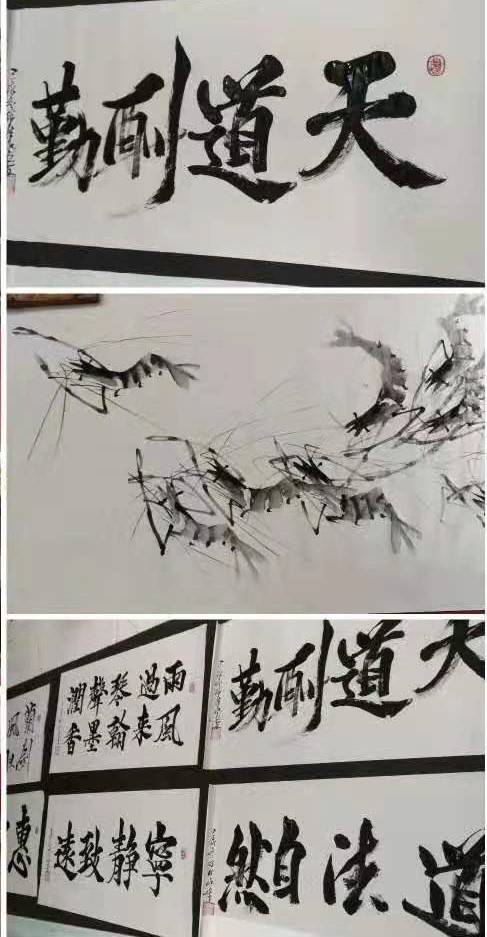 天道酬勤
雨過琴聲潤
風來翰墨香
天道酬勤
寧靜致遠
道法自然
惠